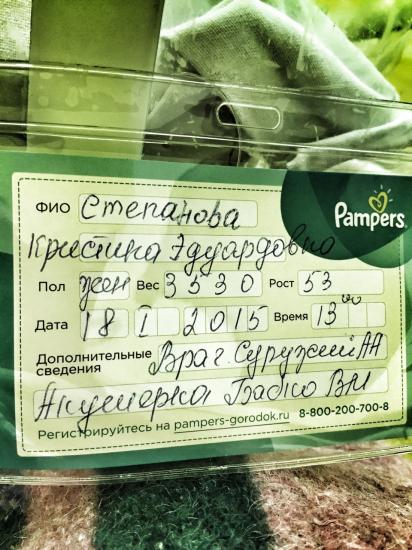 Pampers
ФИО Степанова
Кристина Эдуардовна
Пол жен Вес 3530 Рост 53
Дата 18 I 2015 Время 13 00
Дополнительные
сведения Врач. АА
Акушерка Бабко ВМ
Регистрируйтесь на pampers-gorodok.ru 8-800-200-700-8